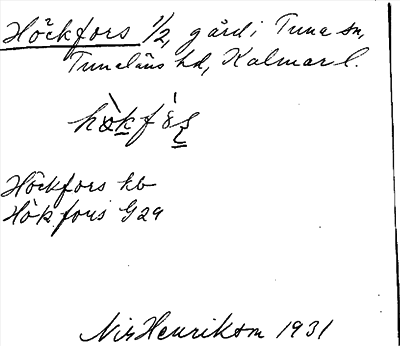 Höckfors 1/2, gård i Tuna sn,
Tunaläns hd, Kalmar l.
Höckfors kb
Hökfors G29
Nils Henrikson 1931